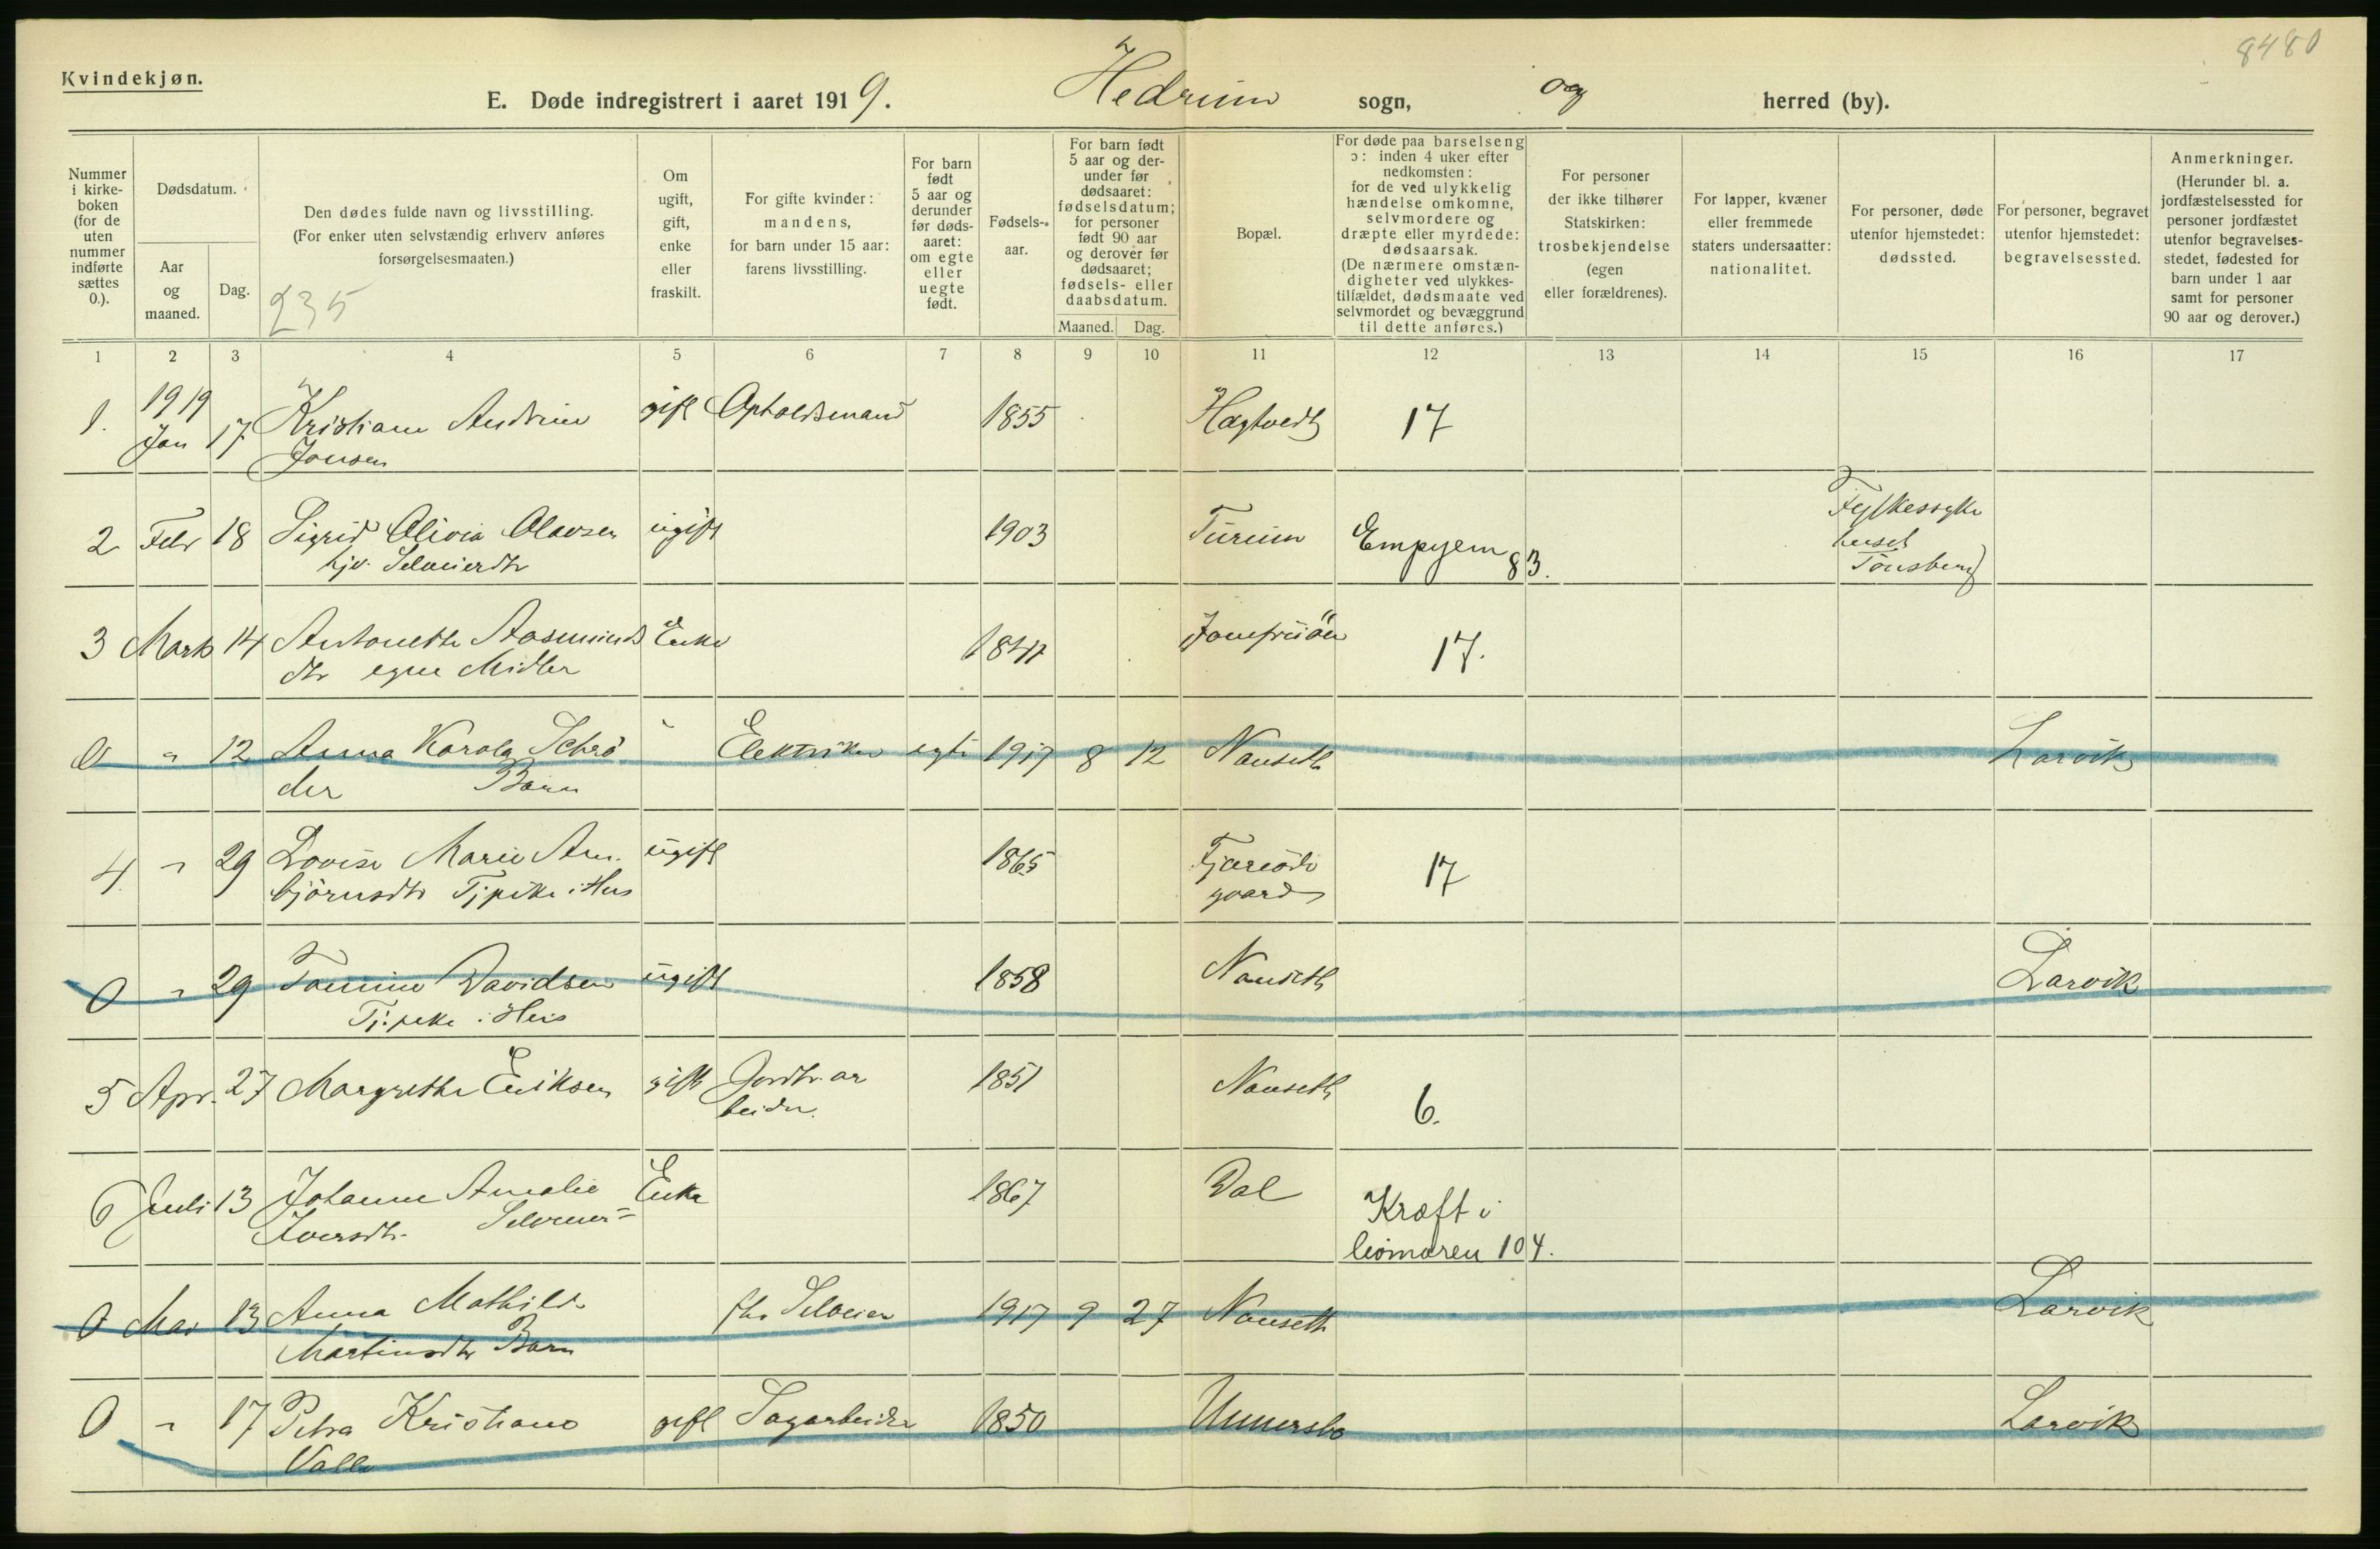 8480
Kvindekjøn.
E. Døde indregistrert i aaret 1919. Hedrum sogn, og herred (by).
Nummer i kirke-boken (for de uten nummer indførte sættes 0.).
Dødsdatum.
Aar og maaned.
Dag.
Den dødes fulde navn og livsstilling.
(For enker uten selvstændig erhverv anføres forsørgelsesmaaten.)
235
Om ugift, gift, enke eller fraskilt.
For gifte kvinder: mandens, for barn under 15 aar: farens livsstilling.
For barn født 5 aar og derunder før døds-aaret: om egte eller uegte født.
Fødsels-aar.
For barn født 5 aar og der-under før dødsaaret: fødselsdatum; for personer født 90 aar og derover før dødsaaret; fødsels- eller daabsdatum.
Maaned. Dag.
Bopæl.
For døde paa barselseng ɔ: inden 4 uker efter nedkomsten: for de ved ulykkelig hændelse omkomne, selvmordere og dræpte eller myrdede: dødsaarsak.
(De nærmere omstæn-digheter ved ulykkes-tilfældet, dødsmaate ved selvmordet og bevæggrund til dette anføres.)
For personer der ikke tilhører Statskirken: trosbekjendelse (egen eller forældrenes).
For lapper, kvæner eller fremmede staters undersaatter: nationalitet.
For personer, døde utenfor hjemstedet: dødssted.
For personer, begravet utenfor hjemstedet: begravelsessted.
Anmerkninger.
(Herunder bl. a. jordfæstelsessted for personer jordfæstet utenfor begravelses-stedet, fødested for barn under 1 aar samt for personer 90 aar og derover.)
1 2 3 4 5 6 7 8 9 10 11 12 13 14 15 16 17
1. 1919 Jan 17 Kristiane Andrine gift Opholdsmand 1855 17
Jonsen
2 Febr 18 Sigrid Olivia Olavsen ugift 1903 Furum Empyem 83. Fylkessyke
hj. Selveierdtr huset
Tønsberg
3 Mars 14 Antonette Aasmunds Enke Jomfruöen 17.
dtr egne Midler
0 " 12 Anna Karola Schrö Elektriker egte 1917 8 12 Nanseth Larvik
der Barn
4 " 29 Lovise Marie Arn ugift 1865 17
björnsdtr Tj.pike i Hus gaard
0 " 29 Davidsen ugift 1858 Nanseth Larvik
Tj.pike i Hus
5 Apr. 27 Margrethe Eriksen gift Jordbr.ar 1851 Nanseth 6.
beider.
6 Juli 13 Johanne Amalie Enke 1867 Dal Kræft i
Iversdtr. livmoren 104.
0 Mai 13 Anna Mathilde fhv Selveier 1917 9 27 Nanseth Larvik
Martinsdtr Barn
0 " 17 Petra Kristiane gift Sagarbeider 1850 Unnersbo Larvik
Valle